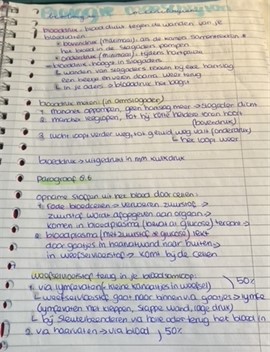 bloeddruk: bloed drukt tegen de wanden van je
bloedvaten
bovendruk (maximaal): als de kamers samentrekken →
het bloed in de slagaders pompen
onderdruk (minimaal): tijdens hartpauze
bloeddruk: hoogst in slagaders
↳ wanden van slagaders rekken bij elke hartslag
een beetje uit en veren daarna weer terug
↳ in je aders → bloeddruk het laagst
bloeddruk meten: (in armslagader)
1. manchet oppompen, geen harslag meer → slagader dicht
2. manchet leeglopen, tot bij eerste harde toon hoort
(bovendruk)
3 lucht loopt verder weg, tot geluid weg valt (onderdruk)
↳ het loopt weer
bloeddruk → uitgedrukt in mm kwikdruk
Paragraaf 6.6
opname stoffen uit het bloed door cellen:
1. rode bloedcellen → vervoeren zuurstof →
zuurstof wordt afgegeven aan organen →
komen in bloedplasma (bevat al glucose) terecht →
2. bloedplasma (met zuurstof & glucose) lekt
door gaatjes in haarvatwand naar buiten →
in weefselvloeistof → komt bij de cellen
weefselvloeistof terug in je bloedsomloop:
1. via lymfevaten (kleine kanaaltjes in weefsel) ) 50%
↳ weefselvloeistof gaat naar binnen via gaatjes → lymfe
(lymfevaten met kleppen, slappe wand, lage druk)
↳ bij sleutelbeenderen via holle ader terug het bloed in
2. via haarvaten → via bloed ) 50%